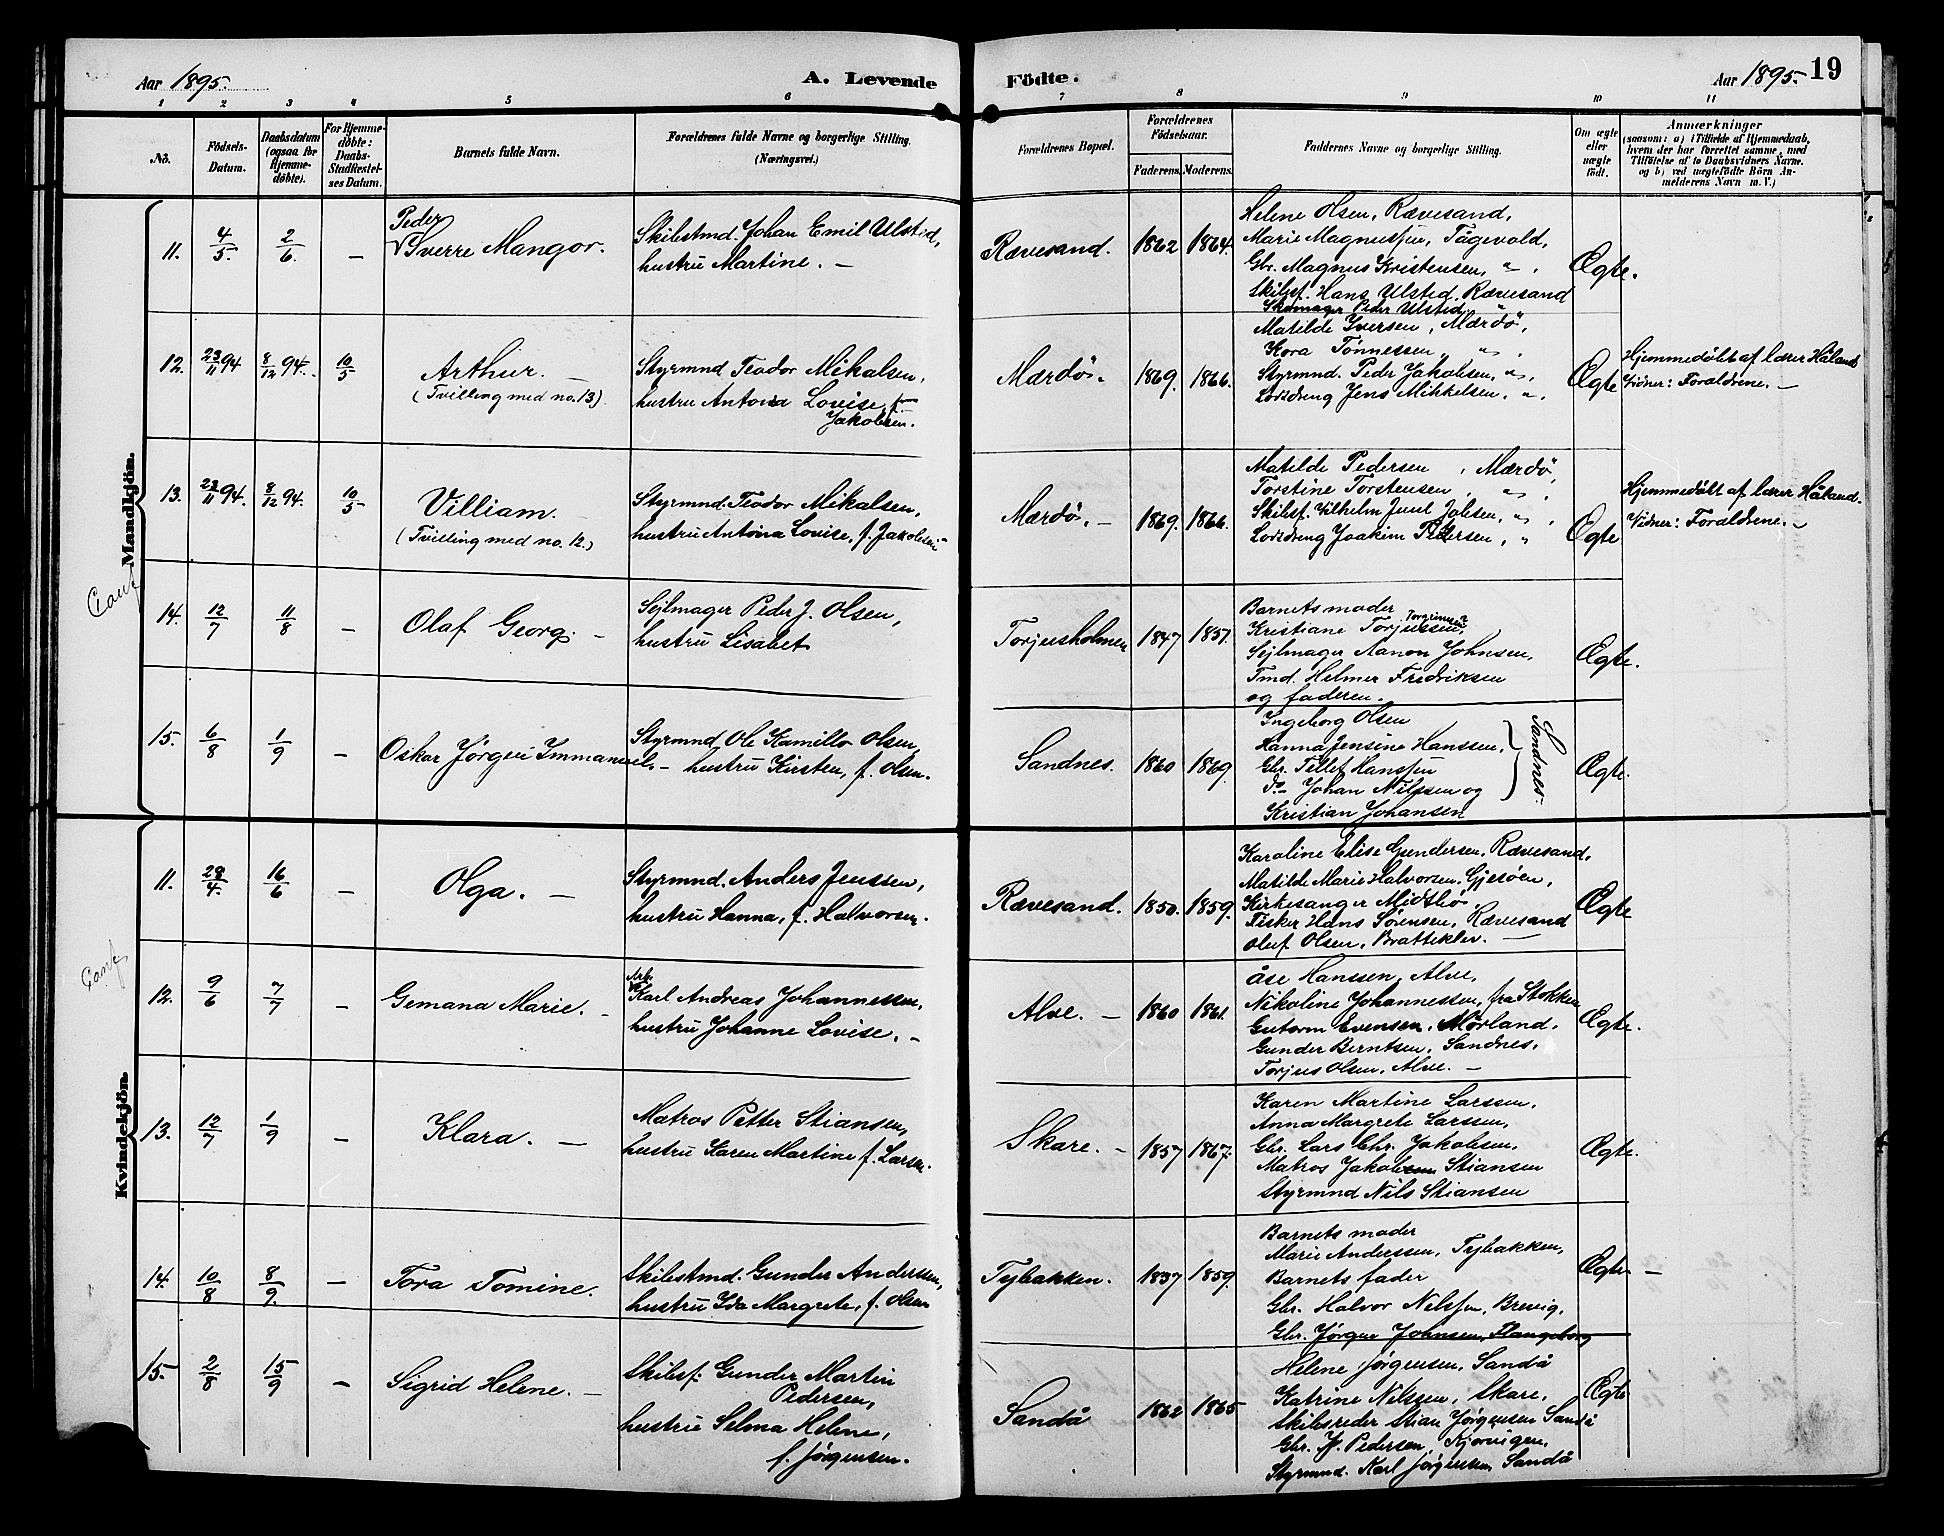 Aar 1895.
A. Levende
Födte.
Aar 1895.
19
1 2 3 4 5 6 7 8 9 10 11
No.
Födsels-
Datum.
Daabsdatum
(ogsaa for
Hjemme-
döbte).
For Hjemme-
döbte:
Daabs-
Stadfæstel-
ses Datum.
Barnets fulde Navn.
Forældrenes fulde Navne og borgerlige Stilling.
(Næringsvei.)
Forældrenes Bopæl.
Forældrenes
Födselsaar.
Faderens. Moderens.
Faddernes Navne og borgerlige Stilling.
Om ægte
eller
uægte
födt.
Anmærkninger
(saasom: a) i Tilfælde af Hjemmedaab,
hvem der har forrettet samme, med
Tilföielse af to Daabsvidners Navne.
og b) ved uægtefödte Börn An-
melderens Navn m. V.)
Mandkjön.
11.
4/5.
2/6.
–
Peder
Sverre Mangor.
Skibstmd. Johan Emil Ulsted,
hustru Martine. –
Rævesand.
1862
1864.
Helene Olsen, Rævesand,
Marie Magnussen, Tågevold,
Gbr. Magnus Kristensen, " .
Skibsf. Hans Ulsted, Rævesand
Skomager Peder Ulsted "
Ægte.
12.
23/11 94
8/12 94.
10/5
Arthur. –
(Tvilling med no. 13).
Styrmnd Teodor Mikalsen,
hustru Antona Lovise, f.
Jakobsen.
Mærdö. -
1869.
1866.
Matilde Iversen, Mærdö,
Kora Tönnessen, " .
Styrmnd. Peder Jakobsen, " ,
Lodsdreng Jens Mikkelsen, " .
Ægte
Hjemmedöbt af lærer Håland
Vidner: Forældrene. –
13.
23/11 94.
8/12 94.
10/5
Villiam.
(Tvilling med no. 12.)
Styrmnd. Teodor Mikalsen,
hustru Antona Lovise, f. Jakobsen
Mærdö. –
1869.
1866.
Matilde Pedersen, Mærdö,
Torstine Torstensen, " .
Skibsf. Vilhelm Juul Jobsen, " ,
Lodsdreng Joakim Pedersen, "
Ægte
Hjemmedöbt af lærer Håland.
Vidner: Forældrene. –
Conf
14.
12/7
11/8
–
Olaf Georg. –
Sejlmager Peder J. Olsen,
hustru Lisabet
Torjusholmen
1847
1851.
Barnets moder
Torgrimsen
Kristiane Torjussen,
Sejlmager Aanon Johnsen,
Tmd. Helmer Fredriksen
og faderen.
Ægte.
15.
6/8
1/9
–
Oskar Jørgen Immanuel. –
Styrmnd Ole Kamillo Olsen,
hustru Kirsten, f. Olsen.
Sandnes.
1860
1869.
Ingeborg Olsen
Hanna Jensine Hanssen,
Gbr. Tellef Hanssen
Do – Johan Nilssen og
Kristian Johansen
Sandnes.
Ægte.
Kvindekjön.
11.
28/4.
16/6
–
Olga. –
Styrmnd. Anders Jenssen,
hustru Hanna, f. Halvorsen.
Rævesand.
1850.
1859.
Karoline Elise Gundersen, Rævesand,
Matilde Marie Halvorsen, Gjesöen,
Kirkesanger Midtbö,
Fisker Hans Sörensen, Rævesand
Oluf Olsen, Brattekler. –
Ægte
Conf
12.
9/6
7/7
–
Gemana Marie. –
Arb.
Karl Andreas Johannessen,
hustru Johanne Lovise. –
Alve. –
1860
1861.
Åse Hanssen, Alve,
Nikoline Johannessen, fra Stokken
Gutorm Evensen, Mörland,
Gunder Berntsen, Sandnes,
Torjus Olsen, Alve. –
Ægte.
13.
12/7
1/9
–
Klara. –
Matros Petter Stiansen,
hustru Karen Martine f. Larsen.
Skare. –
1857
1867.
Karen Martine Larssen,
Anna Margrete Larssen,
Gbr. Lars Chr. Jakobsen,
Matros Jakob Stiansen
Styrmnd Nils Stiansen
Ægte.
14.
10/8
8/9.
–
Tora Tomine.
Skibstmd. Gunder Anderssen,
hustru Ida Margrete, f. Olsen
Tybakken.
1837
1859.
Barnets moder
Marie Anderssen, Tybakken,
Barnets fader
Gbr. Halvor Nilssen, Brevig,
Gbr. Jørgen Johnsen, Flangeborg
Ægte. –
15.
2/8
15/9
–
Sigrid Helene. –
Skibsf. Gunder Martin
Pedersen,
hustru Selma Helene,
f. Jørgensen.
Sandå
1862
1865
Helene Jørgensen, Sandå
Katrine Nilssen, Skare,
Skibsreder Stian Jørgensen Sandå
Gbr. P. Pedersen, Kjørvigen,
Styrmnd. Karl Jørgensen Sandå
Ægte